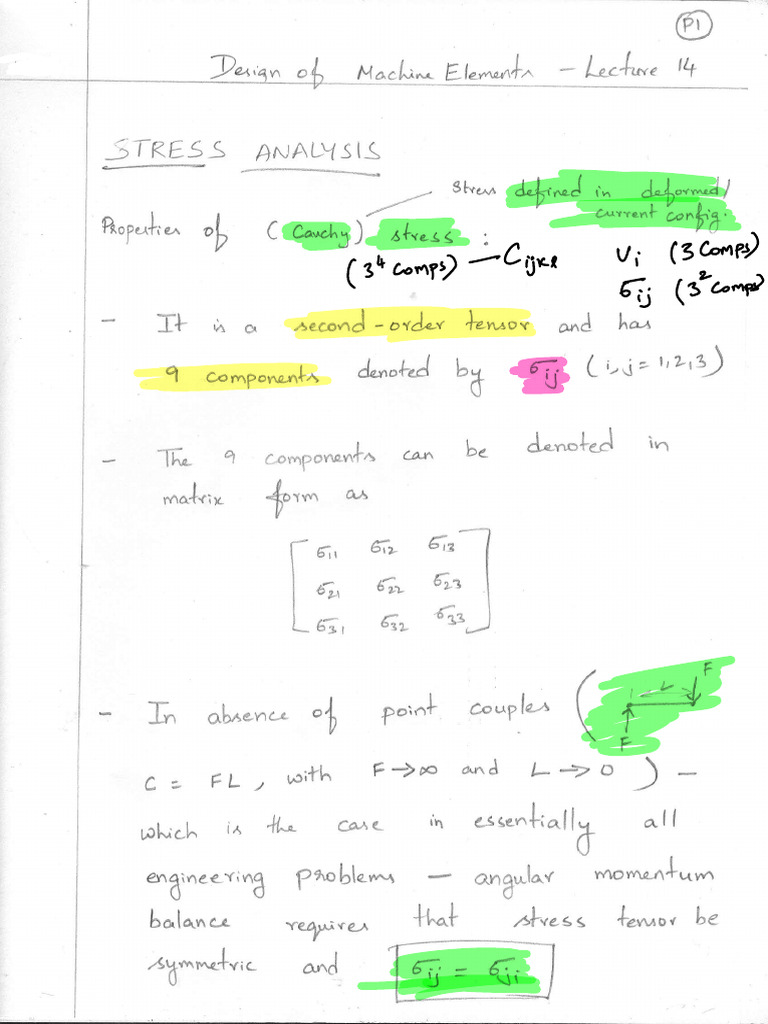 P1
Design of Machine Elements – Lecture 14
STRESS ANALYSIS
Stress defined in deformed/
current config.
Properties of (Cauchy) stress :
(3⁴ comps) — Cijkl
vi (3 comps)
σij (3² comps)
– It is a second-order tensor and has
9 components denoted by σij (i,j = 1,2,3)
– The 9 components can be denoted in
matrix form as
σ11 σ12 σ13
σ21 σ22 σ23
σ31 σ32 σ33
– In absence of point couples (
F
L
F
C = FL, with F→∞ and L→0 ) –
which is the case in essentially all
engineering problems – angular momentum
balance requires that stress tensor be
symmetric and σij = σji